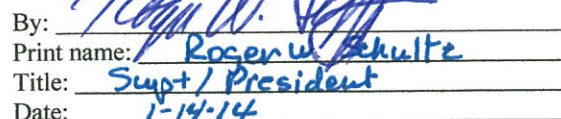 By: Roger W.
Print name: Roger W. Schultz
Title: Supt / President
Date: 1-14-14